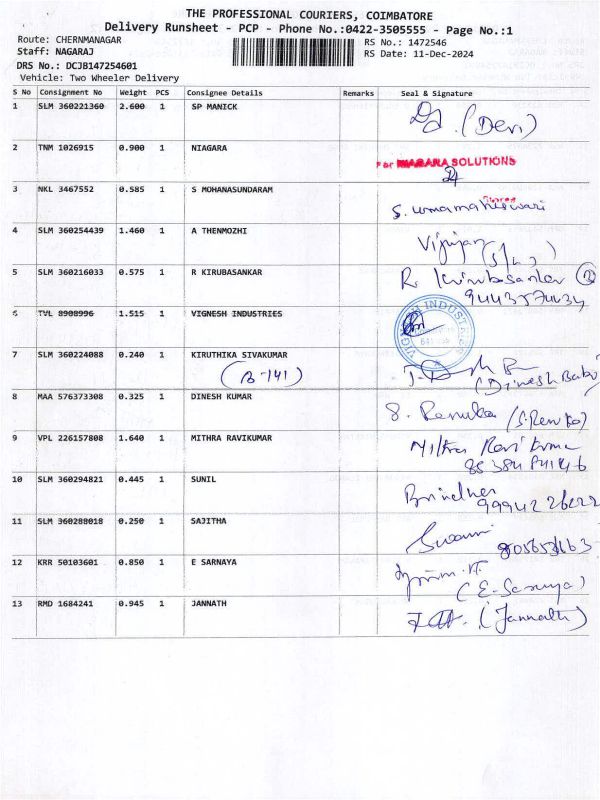 THE PROFESSIONAL COURIERS, COIMBATORE
Delivery Runsheet - PCP - Phone No.:0422-3505555 - Page No.:1
Route: CHERNMANAGAR RS No.: 1472546
Staff: NAGARAJ RS Date: 11-Dec-2024
DRS No.: DCJB147254601
Vehicle: Two Wheeler Delivery
S No Consignment No Weight PCS Consignee Details Remarks Seal & Signature
1 SLM 360221360 2.600 1 SP MANICK (Devi)
2 TNM 1026915 0.900 1 NIAGARA
For NIAGARA SOLUTIONS
3 NKL 3467552 0.585 1 S MOHANASUNDARAM
S. umamaheswari
4 SLM 360254439 1.460 1 A THENMOZHI
5 SLM 360216033 0.575 1 R KIRUBASANKAR R. Kirubasankar
9443574434
6 TVL 8908996 1.515 1 VIGNESH INDUSTRIES
7 SLM 360224088 0.240 1 KIRUTHIKA SIVAKUMAR
(B-141) (Dinesh Babu)
8 MAA 576373308 0.325 1 DINESH KUMAR
S. Renuka (S.Renuka)
9 VPL 226157808 1.640 1 MITHRA RAVIKUMAR Mithra Ravi Kumar
10 SLM 360294821 0.445 1 SUNIL
11 SLM 360288018 0.250 1 SAJITHA
12 KRR 50103601 0.850 1 E SARNAYA
(E-Saranya)
13 RMD 1684241 0.945 1 JANNATH (Jannath)